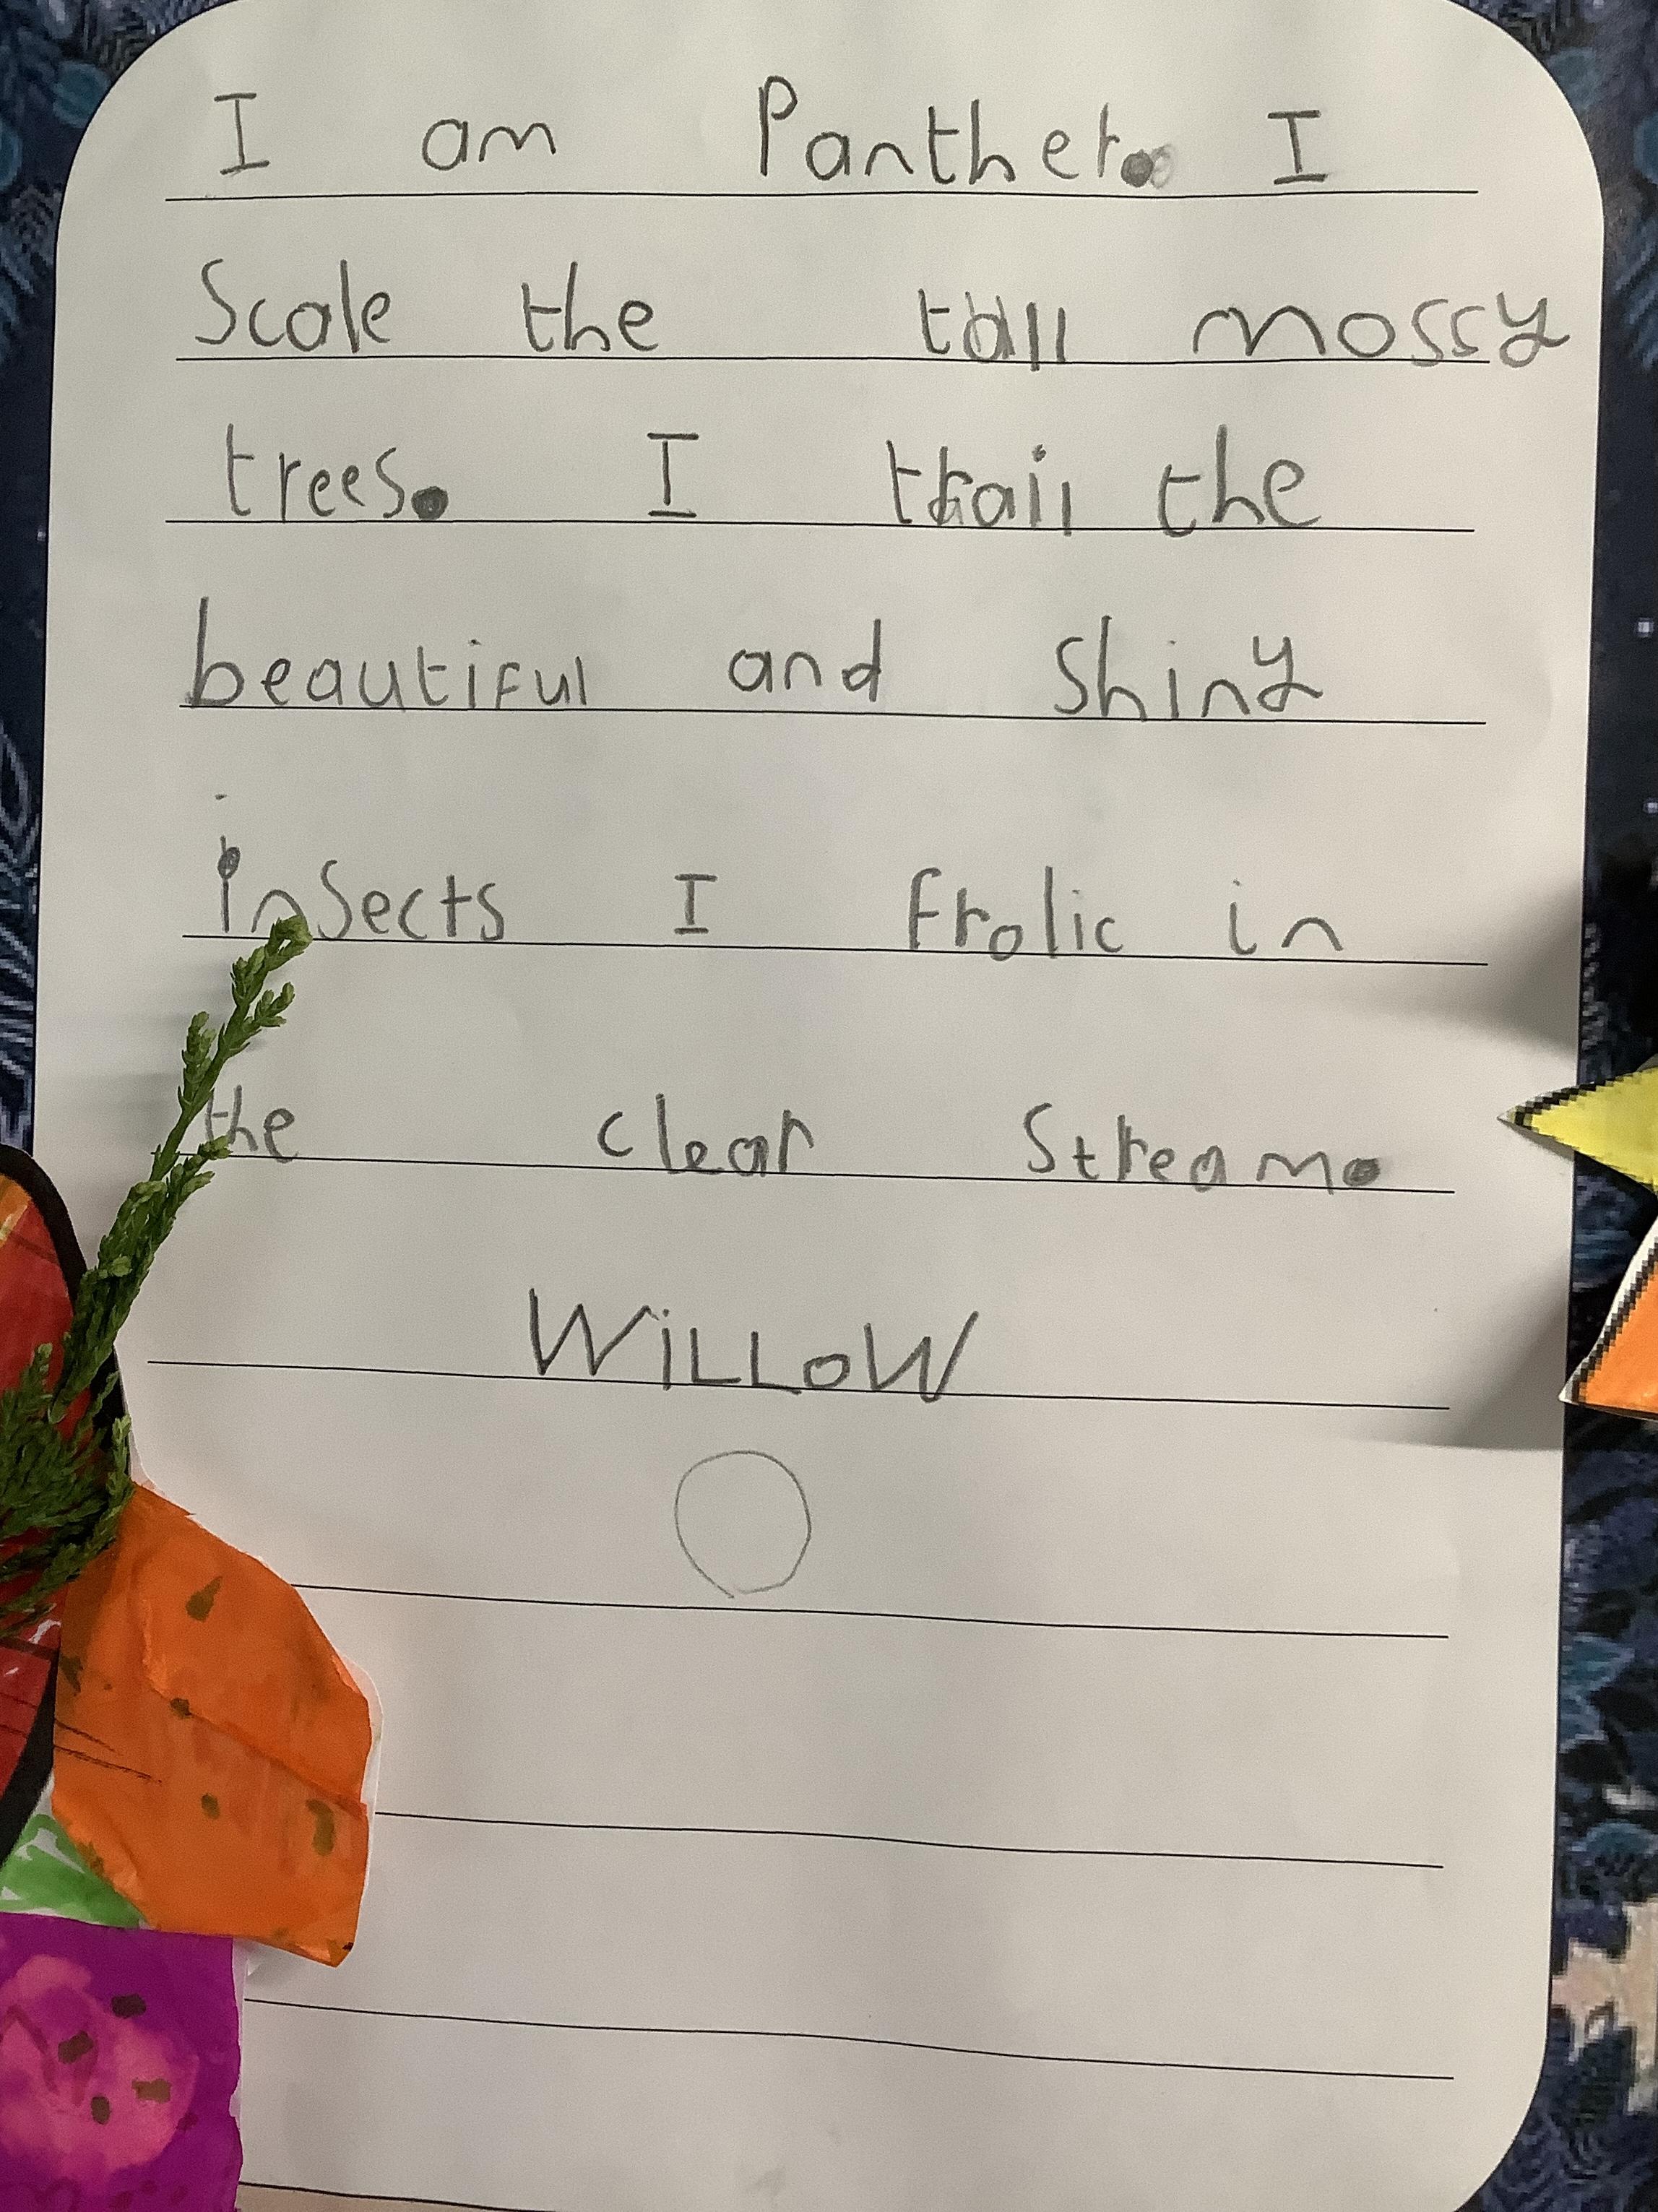 I am Panther. I
Scale the tall mossy
trees. I trail the
beautiful and shiny
insects I frolic in
the clear stream.
WiLLoW